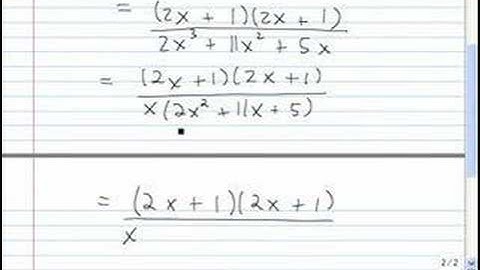 = (2x + 1)(2x + 1)
2x³ + 11x² + 5x
= (2x + 1)(2x + 1)
x(2x² + 11x + 5)
= (2x + 1)(2x + 1)
x
2/2